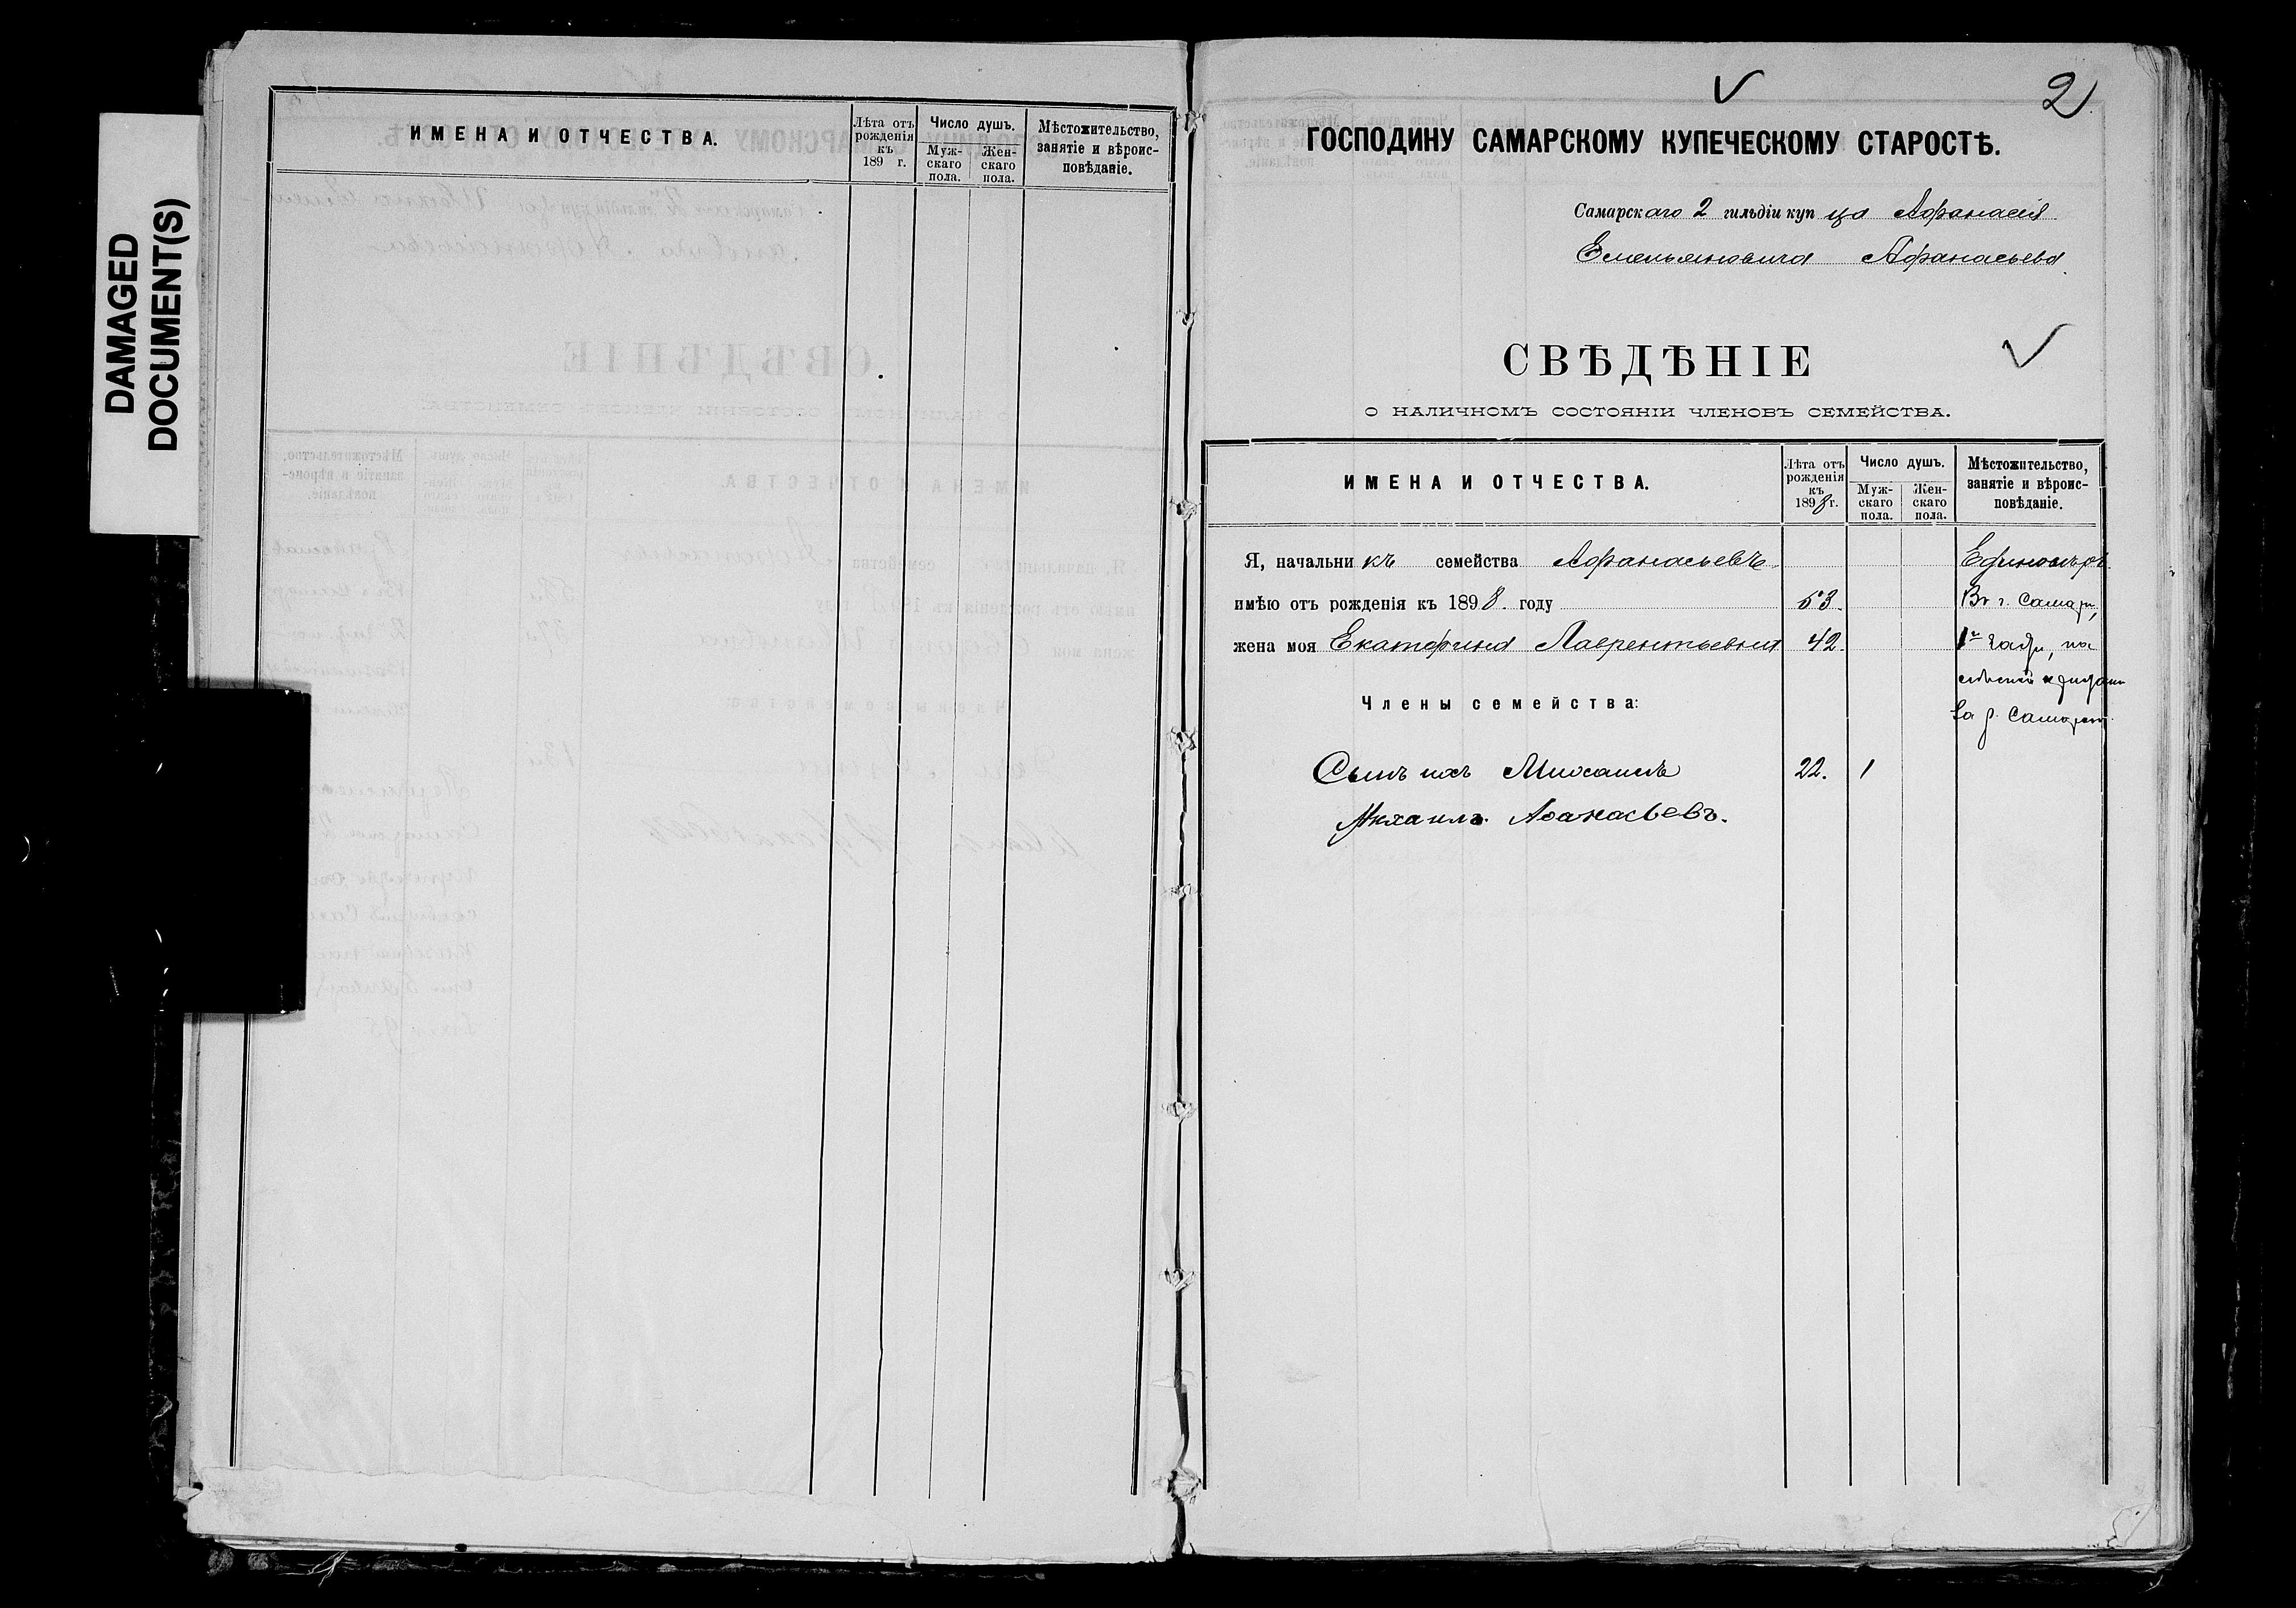 DAMAGED
DOCUMENT(S)
ИМЕНА И ОТЧЕСТВА.
Лѣта отъ
рожденія
къ
189 г.
Число душъ.
Муж-
скаго
пола.
Жен-
скаго
пола.
Мѣстожительство,
занятіе и вѣроис-
повѣданіе.
2
ГОСПОДИНУ САМАРСКОМУ КУПЕЧЕСКОМУ СТАРОСТѢ.
Самарскаго 2 гильдіи купца Афанасія
Емельяновича Афанасьева
СВѢДѢНІЕ
О НАЛИЧНОМЪ СОСТОЯНІИ ЧЛЕНОВЪ СЕМЕЙСТВА.
ИМЕНА И ОТЧЕСТВА.
Лѣта отъ
рожденія
къ
1898 г.
Число душъ.
Муж-
скаго
пола.
Жен-
скаго
пола.
Мѣстожительство,
занятіе и вѣроис-
повѣданіе.
Я, начальникъ семейства Афанасьевъ Единовѣр.
имѣю отъ рожденія къ 1898. году 53. Въ г. Самарѣ,
жена моя Екатерина Лаврентьевна 42. 1й части, на
Члены семейства:
За р. Самарой.
Сынъ ихъ Михаилъ 22. 1
Михаилъ Афанасьевъ.